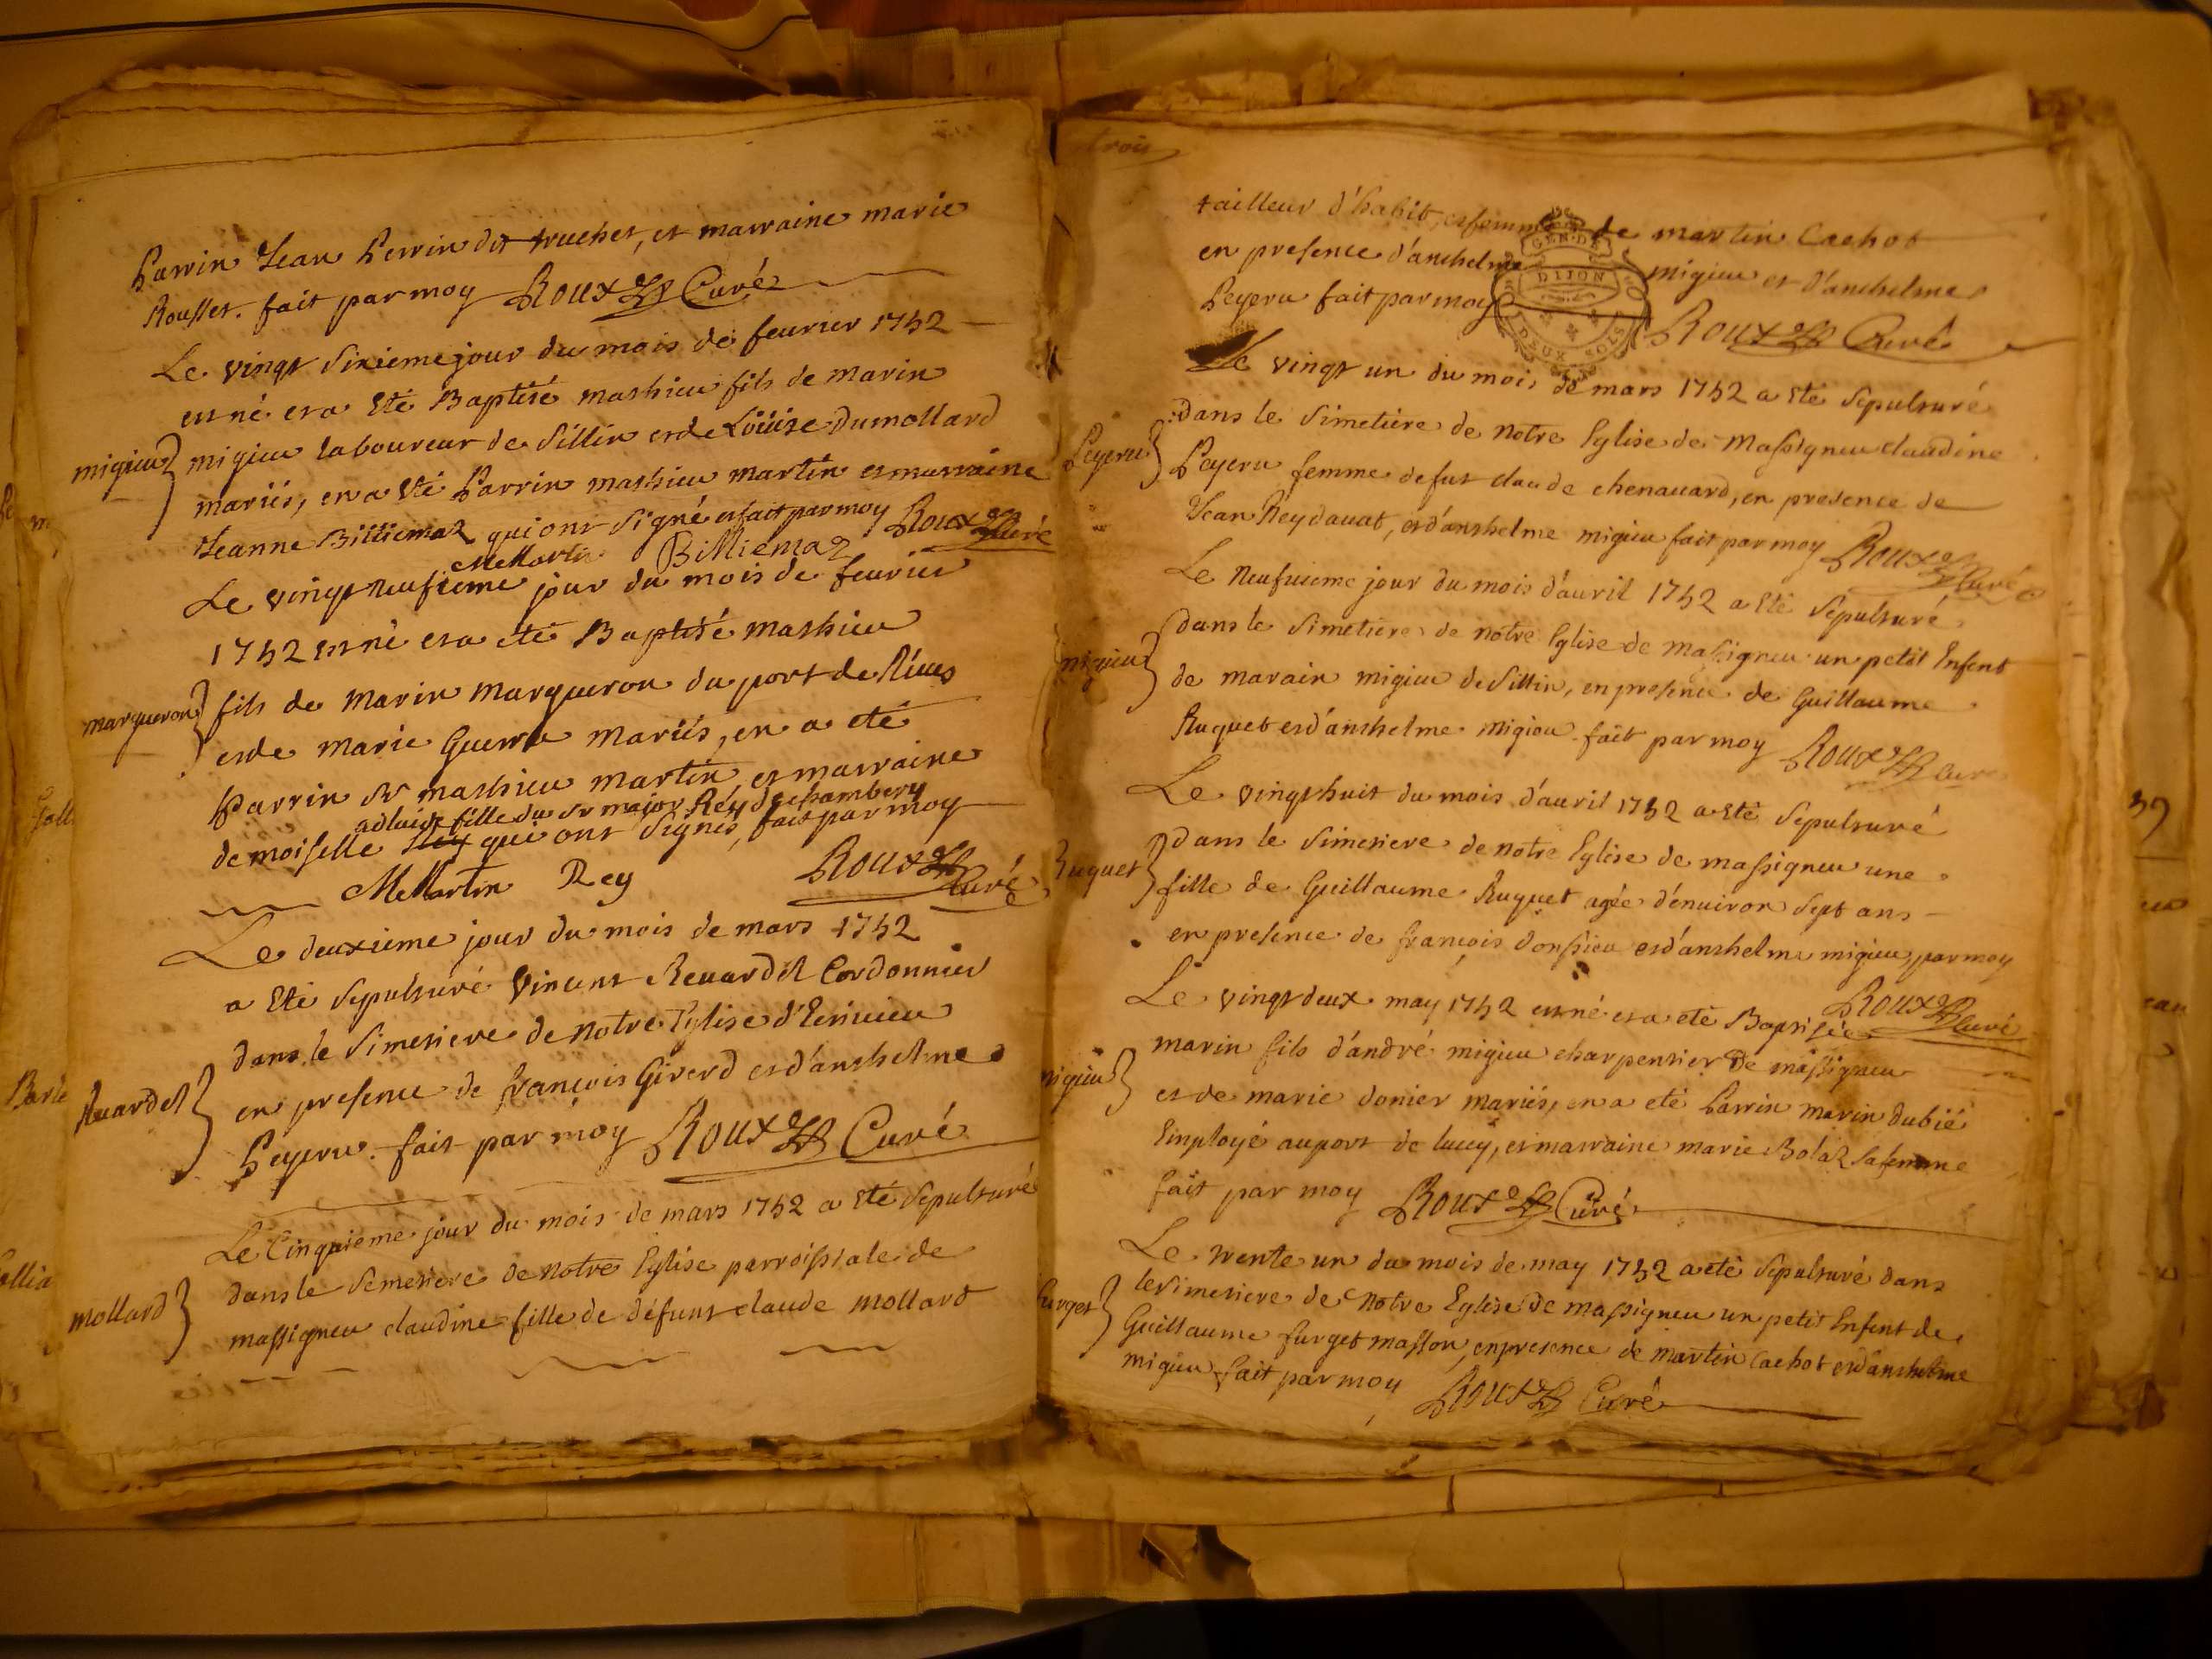 Parrin Jean Perrin dit truchet, et marraine marie
Rousset. fait par moy Roux Curé
Le vingt sixieme jour du mois de feurier 1752
est né et a Eté Baptisé mathieu fils de marin
migieu
migieu laboureur de Sillin et de Loüise Dumollard
mariés, en a Eté Parrin mathieu martin et marraine
Jeanne Billiemaz qui ont signé et fait par moy Roux Curé
MeMartin Billiemaz
Le vingt neufieme jour du mois de feurier
1752 est né et a eté Baptisé mathieu
marqueron
fils de marin marqueron du port de Riues
et de marie Guerra mariés, en a eté
Parrin Sr mathieu martin et marraine
adlaide fille du Sr major Réy de chambery
demoiselle qui ont Signés, fait par moy
MeMartin Rey Roux Curé
Le deuxieme jour du mois de mars 1752
a Eté sepulturé Vincent Reuardel Cordonnier
dans le Simetiere de notre Eglise
Reuardel
en presence de françois Girerd et d'anthelme
Peyeru. fait par moy Roux Curé
Le Cinquieme jour du mois de mars 1752 a Eté sepulturé
dans le Semetiere de notre Eglise parroissiale de
mollard
massigneu claudine fille de défunt claude mollard
trois
tailleur d'habit, et femme de martin Cachot
en presence d'anthelme migieu et d'anthelme
Peyeru fait par moy Roux Curé
GEN. DE
DIJON
DEUX SOLS
Le vingt un du mois de mars 1752 a Eté Sepulturé
dans le Simetiere de notre Eglise de Massigneu claudine
Peyeru
Peyeru femme de fut claude chenauard, en presence de
Jean Reydauat, et d'anthelme migieu fait par moy Roux Curé
Le Neufuieme jour du mois d'auril 1752 a Eté Sepulturé
dans le Simetiere de notre Eglise de massigneu un petit Enfent
migieu
de marain migieu de Sillin, en presence de Guillaume
Ruquet et d'anthelme migieu fait par moy Roux Curé
Le vingt huit du mois d'auril 1752 a Eté Sepulturé
dans le Simetiere de notre Eglise de massigneu une
Ruquet
fille de Guillaume Ruquet agée d'enuiron sept ans
en presence de françois et d'anthelme migieu, par moy
Roux Curé
Le vingt deux may 1752 est né et a eté Baptisée
marin fils d'andré migieu charpentier de massigneu
migieu
et de marie donier mariés, en a eté Parrin marin Dubié
Employé au port de lucey, et marraine marie Bolaz sa femme
fait par moy Roux Curé
Le trente un du mois de may 1752 a eté Sepulturé dans
le Simetiere de Notre Eglise de massigneu un petit Enfent de
furget
Guillaume furget masson, en presence de martin Cachot et d'anthelme
migieu fait par moy Roux Curé